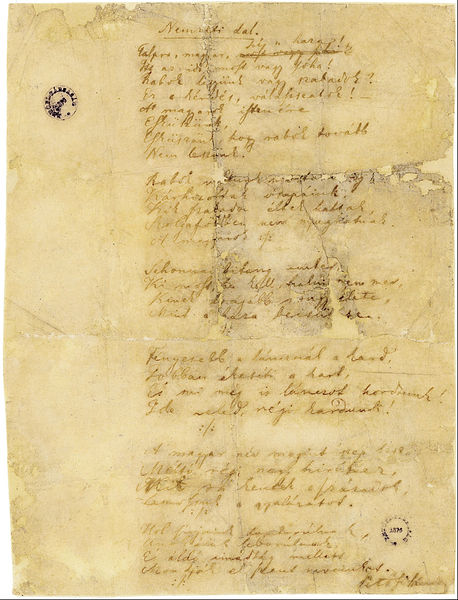 Nemzeti dal.
Talpra magyar, hí a haza!
Itt az idő, most vagy soha!
Rabok legyünk vagy szabadok?
Ez a kérdés, válasszatok! –
A magyarok istenére
Esküszünk,
Esküszünk, hogy rabok tovább
Nem leszünk!
Rabok
Kárhozottak ősapáink,
Kik szabadon éltek haltak
Szolgaföldben nem nyughatnak
A magyarok
Sehonnai bitang ember,
Ki most, ha kell, halni nem mer,
Kinek drágább rongy élete,
Mint a haza becsülete.
Fényesebb a láncznál a kard,
Jobban ékesíti a kart,
És mi még is lánczot hordunk!
Ide veled, régi kardunk!
A magyar név megint szép lesz,
Méltó régi nagy híréhez,
Mit rá kentek a századok,
Lemossuk a gyalázatot.
Hol sírjaink domborulnak,
Unokáink leborulnak,
És áldó imádság mellett
Mondják el szent neveinket.
1876